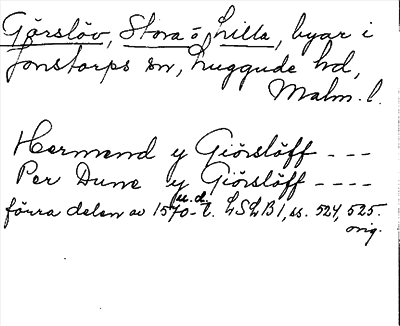 Görslöv, Stora o Lilla, byar i
Jonstorps sn, Luggude hd,
Malm. l.
Hermend y Giörslöff - - -
Per Dune y Giörslöff - - - -
u. d.
förra delen av 1570-t. LSLB 1, ss. 524, 525.
orig.